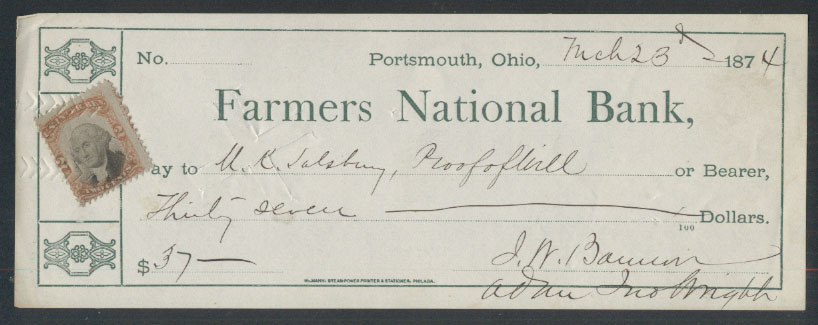 No. Portsmouth, Ohio, Mch 23d 1874
Farmers National Bank,
ay to M. K. Salsbury, Proof of Will or Bearer,
Thirty seven Dollars.
100
$37
J. W. Bannon
STEAM-POWER PRINTER & STATIONER, PHILADA.
Jno Wright